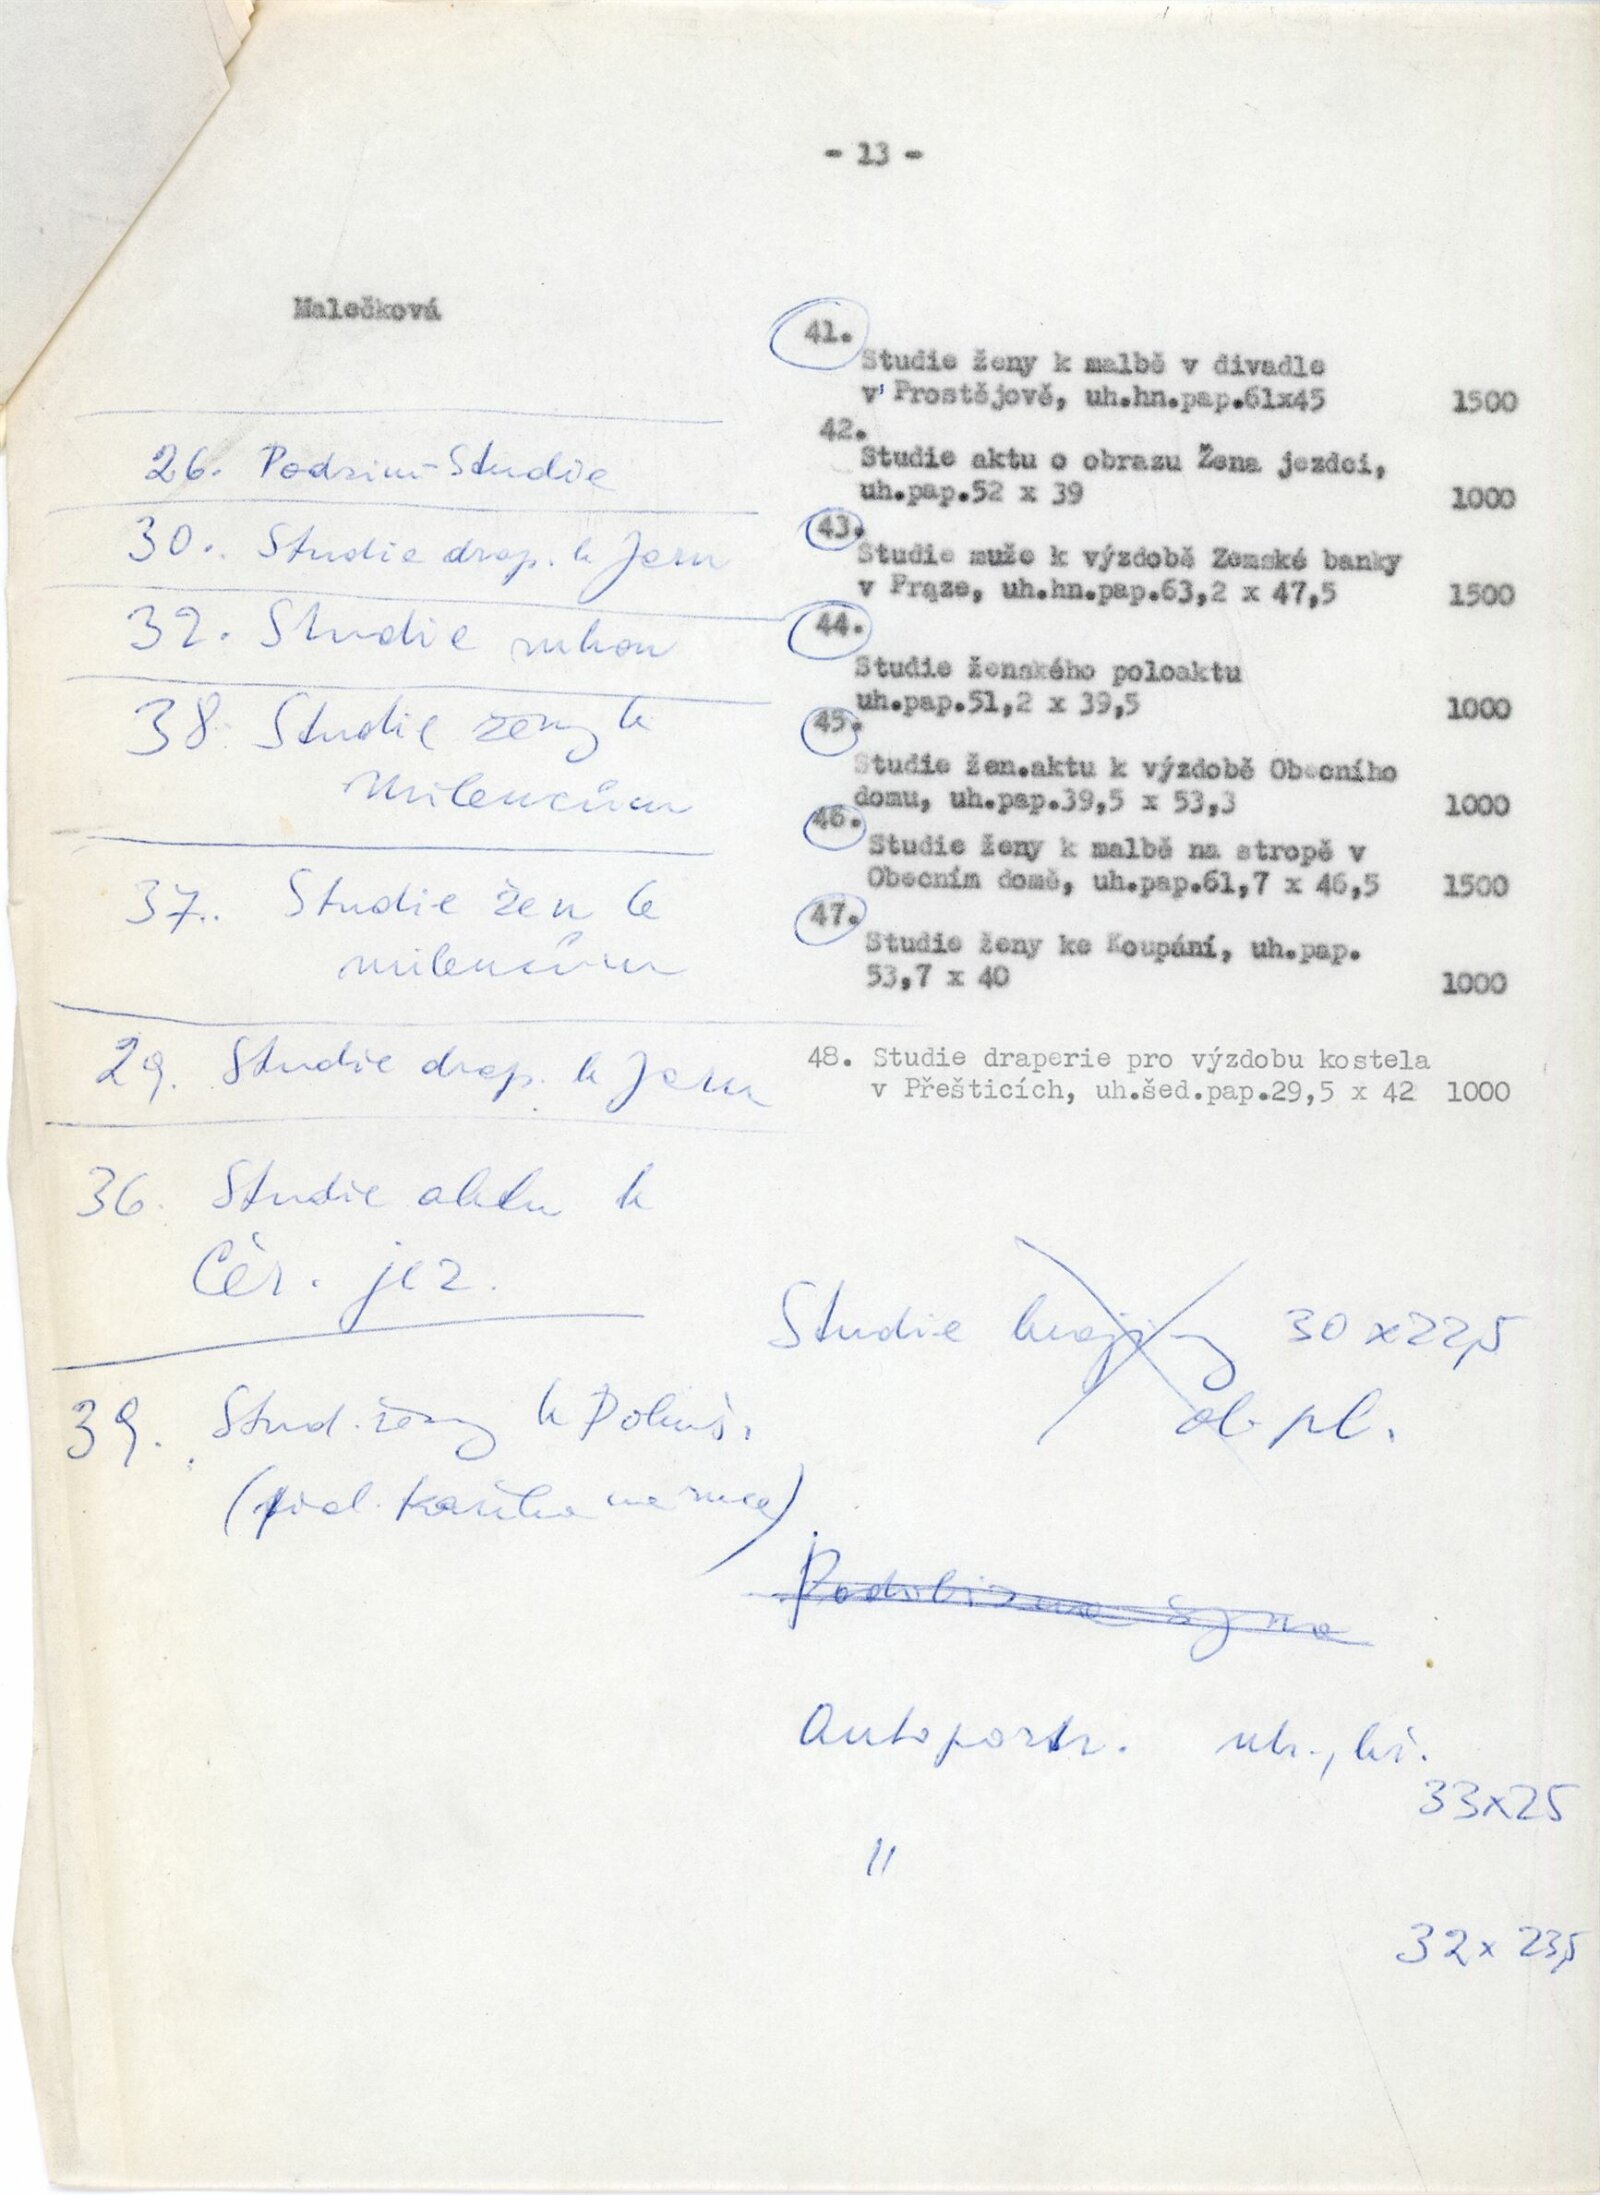 - 13 -
Malečková
26. Podzim-Studie
30. Studie drap. k Jaru
32. Studie rukou
38. Studie ženy k
Milencům
37. Studie žen k
milencům
29. Studie drap. k Jaru
36. Studie aktu k
Čer. jez.
39. Stud. ženy k Pokuš.
41.
Studie ženy k malbě v divadle
v Prostějově, uh.hn.pap.61x45 1500
42.
Studie aktu o obrazu Žena jezdci,
uh.pap.52 x 39 1000
43.
Studie muže k výzdobě Zemské banky
v Praze, uh.hn.pap.63,2 x 47,5 1500
44.
Studie ženského poloaktu
uh.pap.51,2 x 39,5 1000
45.
Studie žen.aktu k výzdobě Obecního
domu, uh.pap.39,5 x 53,3 1000
46.
Studie ženy k malbě na stropě v
Obecním domě, uh.pap.61,7 x 46,5 1500
47.
Studie ženy ke Koupání, uh.pap.
53,7 x 40 1000
48. Studie draperie pro výzdobu kostela
v Přešticích, uh.šed.pap.29,5 x 42 1000
Studie krajiny 30 x 22,5
ol. pl.
Podobizna syna
Autoportr. uh., kř.
33x25
"
32 x 23,5